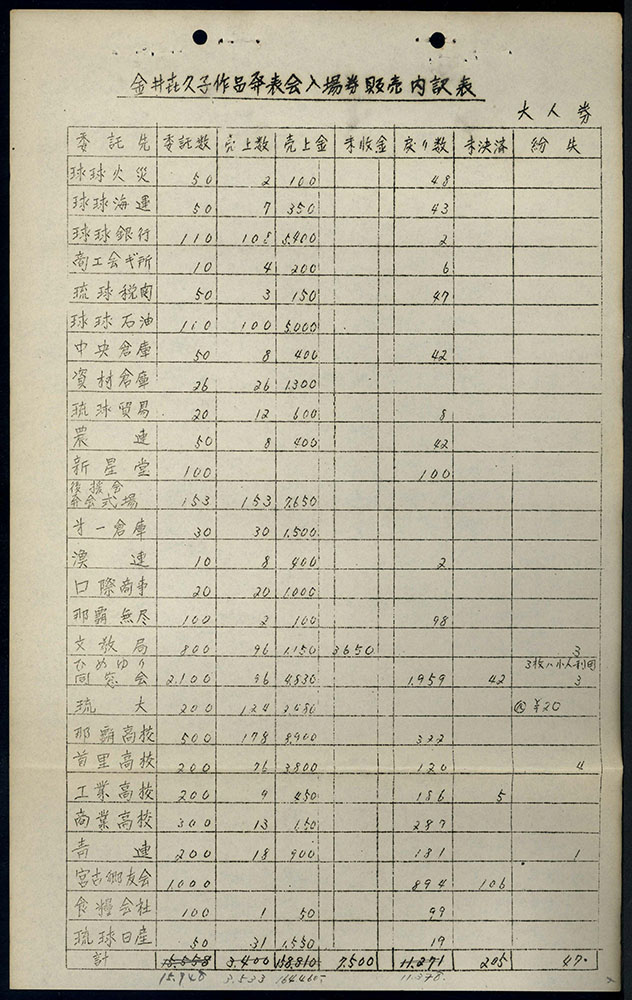 金井喜久子作品発表会入場券販売内訳表
大人券
委託先 委託数 売上数 売上金 未収金 戻り数 未決済 紛失
球球火災 50 2 100 48
球球海運 50 7 350 43
球球銀行 110 108 5,400 2
商工会 所 10 4 200 6
琉球税関 50 3 150 47
球球石油 100 5,000
中央倉庫 50 8 400 42
資材倉庫 26 26 1,300
琉球貿易 20 12 600 8
農連 50 8 400 42
新星堂 100 100
後援会
発会式場 153 153 7,650
才一倉庫 30 30 1,500
漁連 10 8 400 2
口際商事 20 20 1,000
那覇無尽 100 2 100 98
文教局 800 96 1,150 3650 3
ひめゆり 3枚ハ小人利用
同窓会 2,100 96 4,830 1,959 42 3
琉大 200 124 2,480 @ ¥20
那覇高校 500 178 8,900 322
首里高校 200 76 3,800 120 4
工業高校 200 9 450 186 5
商業高校 300 13 150 287
青連 200 18 900 181 1
宮古郷友会 1,000 894 106
食糧会社 100 1 50 99
琉球日産 50 31 1,550 19
計 15,558 3,400 158,810 7,500 11,271 205 47
15,948 3,533 164,460 11,378